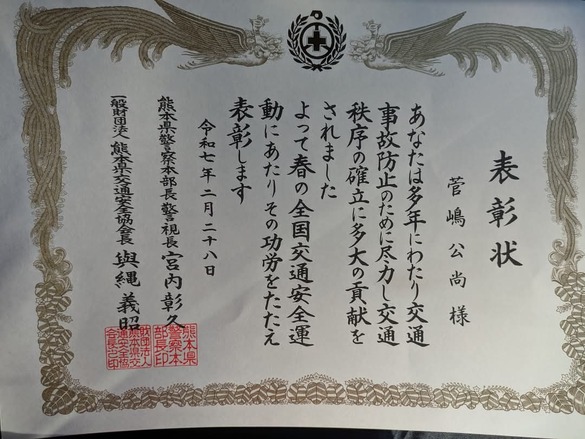 表彰状
菅嶋公尚様
あなたは多年にわたり交通
事故防止のために尽力し交通
秩序の確立に多大の貢献を
されました
よって春の全国交通安全運
動にあたりその功労をたたえ
表彰します
令和七年二月二十八日
熊本県警察本部長警視長宮内彰久
一般財団法人熊本県交通安全協会長與縄義昭
熊本県
警察本
部長印
財団法人
熊本県交
通安全協
会長之印